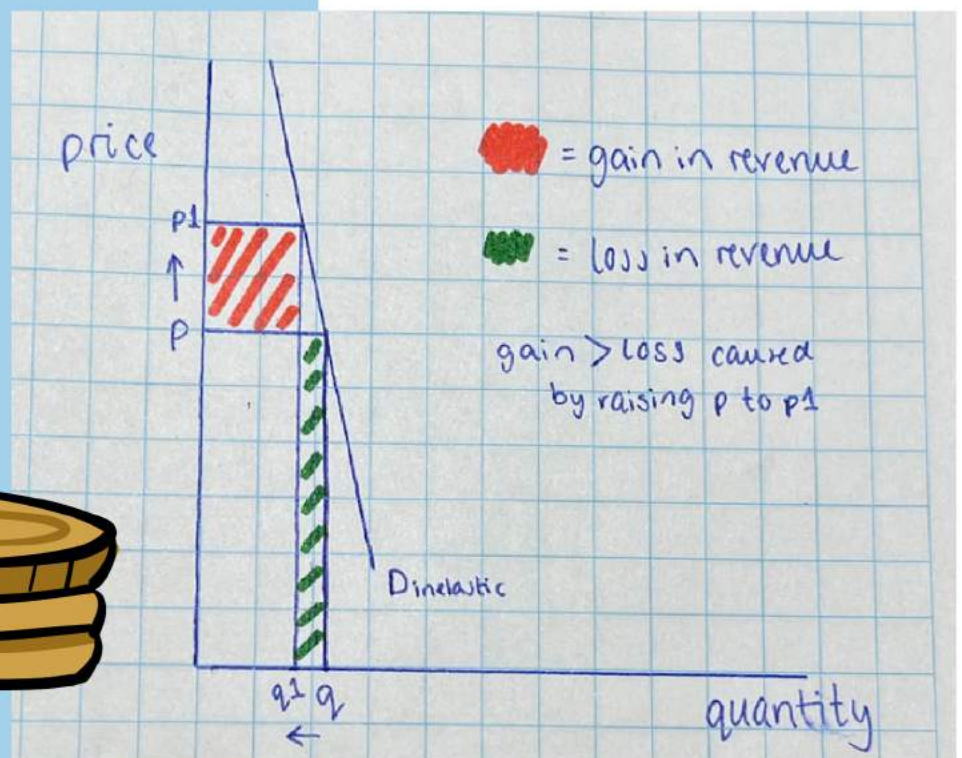 price
p1
↑
p
= gain in revenue
= loss in revenue
gain > loss caused
by raising p to p1
Dinelastic
q1 q
←
quantity